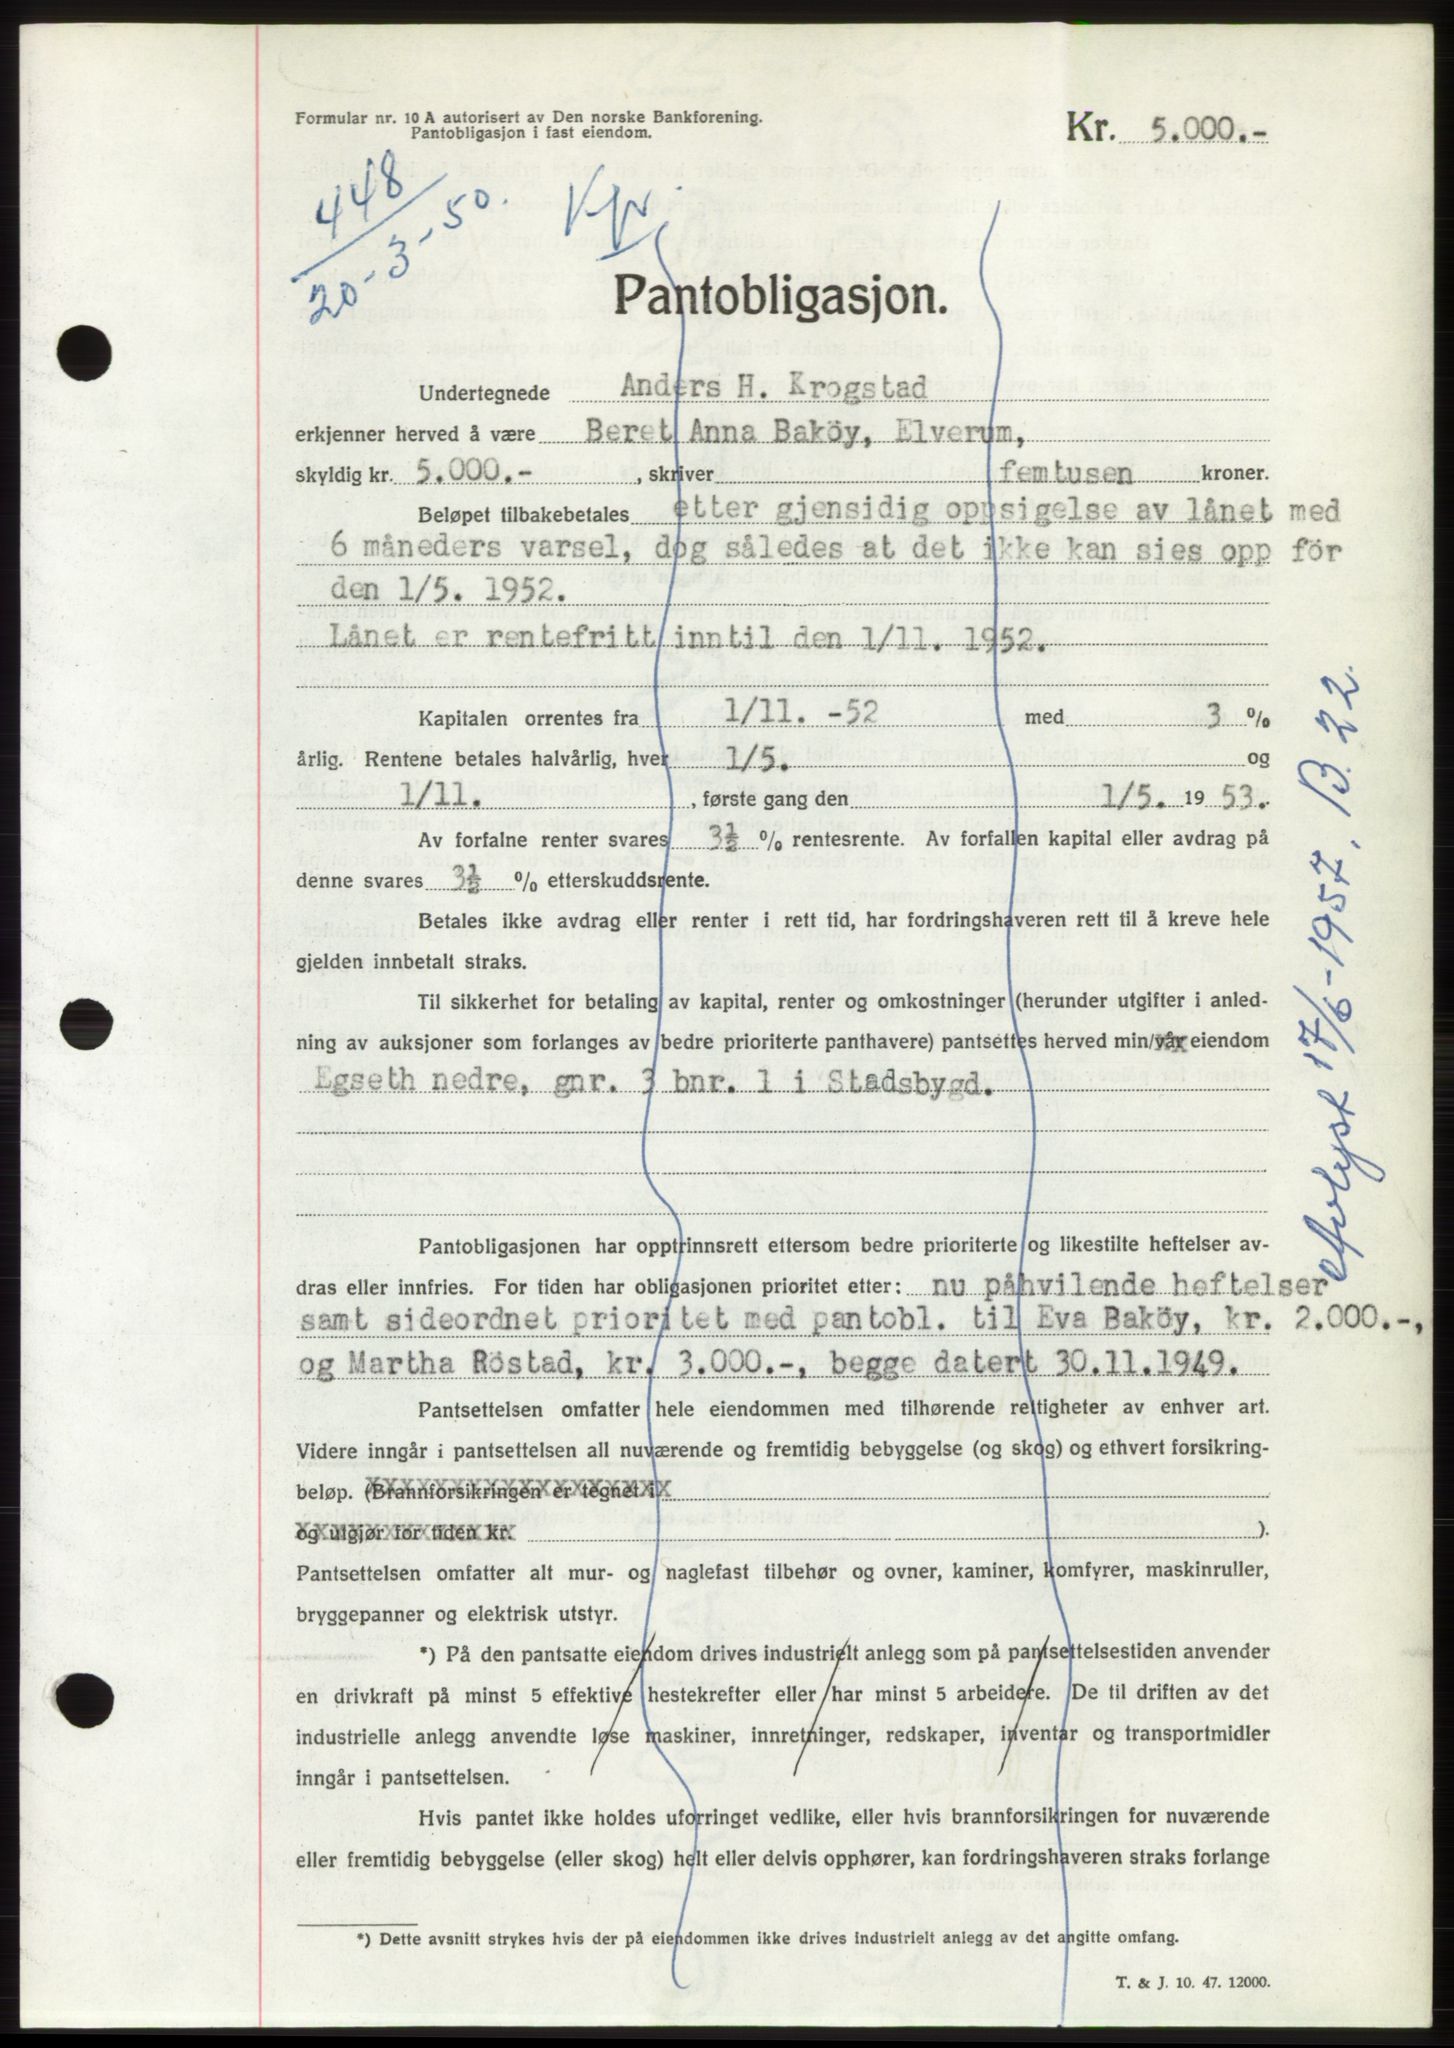 Formular nr. 10 A autorisert av Den norske Bankforening.
Pantobligasjon i fast eiendom.
Kr. 5.000.-
448
20-3-50.
Pantobligasjon.
Undertegnede Anders H. Krogstad
erkjenner herved å være Beret Anna Baköy, Elverum,
skyldig kr. 5.000.- , skriver femtusen kroner.
Beløpet tilbakebetales etter gjensidig oppsigelse av lånet med
6 måneders varsel, dog således at det ikke kan sies opp för
den 1/5. 1952.
Lånet er rentefritt inntil den 1/11. 1952.
Kapitalen orrentes fra 1/11. -52 med 3 %
årlig. Rentene betales halvårlig, hver 1/5. og
1/11. , første gang den 1/5. 19 53.
Av forfalne renter svares 3½ % rentesrente. Av forfallen kapital eller avdrag på
denne svares 3½ % etterskuddsrente.
Betales ikke avdrag eller renter i rett tid, har fordringshaveren rett til å kreve hele
gjelden innbetalt straks.
Til sikkerhet for betaling av kapital, renter og omkostninger (herunder utgifter i anled-
ning av auksjoner som forlanges av bedre prioriterte panthavere) pantsettes herved min/vår eiendom
Egseth nedre, gnr. 3 bnr. 1 i Stadsbygd.
Pantobligasjonen har opptrinnsrett ettersom bedre prioriterte og likestilte heftelser av-
dras eller innfries. For tiden har obligasjonen prioritet etter: nu påhvilende heftelser
samt sideordnet prioritet med pantobl. til Eva Baköy, kr. 2.000.-,
og Martha Röstad, kr. 3.000.-, begge datert 30.11.1949.
Pantsettelsen omfatter hele eiendommen med tilhørende rettigheter av enhver art.
Videre inngår i pantsettelsen all nuværende og fremtidig bebyggelse (og skog) og ethvert forsikring-
beløp. (Brannforsikringen er tegnet i
og utgjør for tiden kr. ).
Pantsettelsen omfatter alt mur- og naglefast tilbehør og ovner, kaminer, komfyrer, maskinruller,
bryggepanner og elektrisk utstyr.
*) På den pantsatte eiendom drives industrielt anlegg som på pantsettelsestiden anvender
en drivkraft på minst 5 effektive hestekrefter eller har minst 5 arbeidere. De til driften av det
industrielle anlegg anvendte løse maskiner, innretninger, redskaper, inventar og transportmidler
inngår i pantsettelsen.
Hvis pantet ikke holdes uforringet vedlike, eller hvis brannforsikringen for nuværende
eller fremtidig bebyggelse (eller skog) helt eller delvis opphører, kan fordringshaveren straks forlange
*) Dette avsnitt strykes hvis der på eiendommen ikke drives industrielt anlegg av det angitte omfang.
T. & J. 10. 47. 12000.
Avlyst 17/6-1957. B. 22.